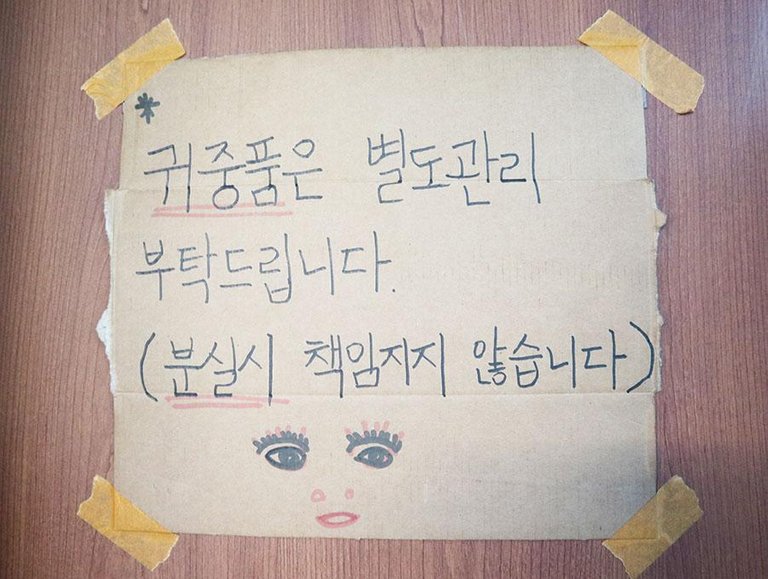 * 귀중품은 별도관리
부탁드립니다.
(분실시 책임지지 않습니다)